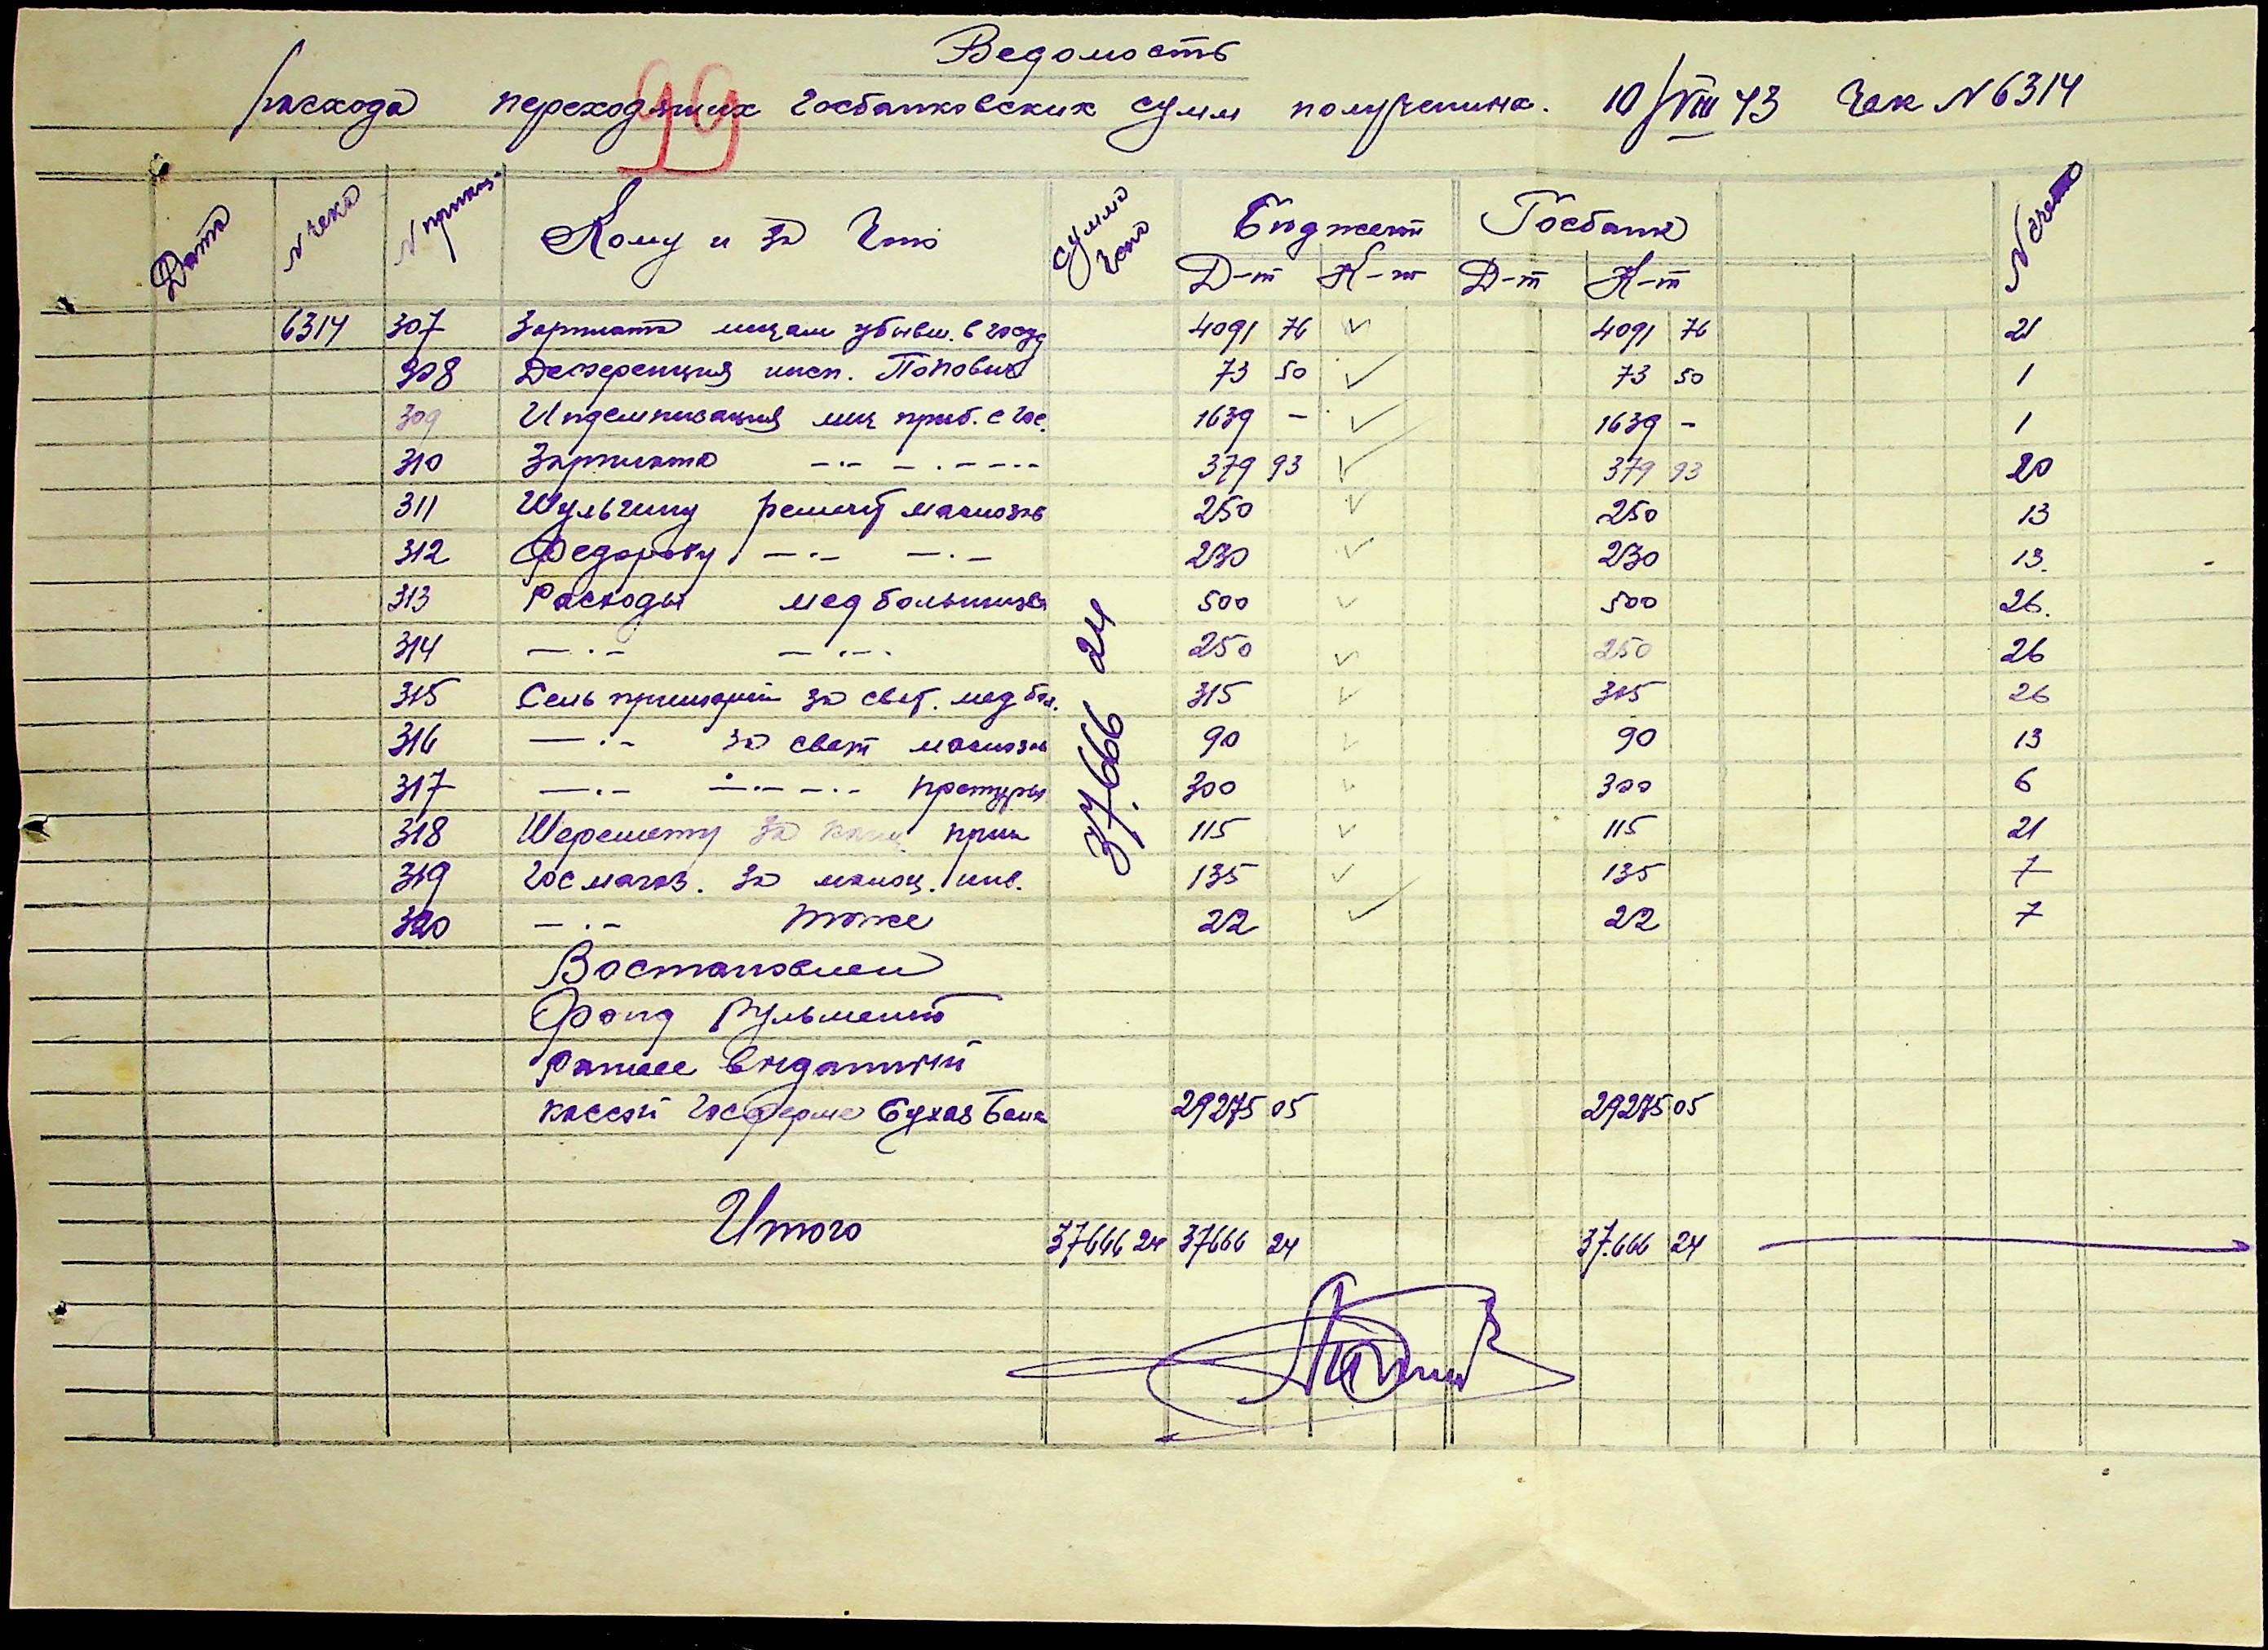 Ведомость
расхода переходящих госбанковских сумм получения. 10/VIII 43 Чек N 6314
99
Дата N чека N приказ. Кому и за что сумма чека Бюджет Госбанк N счета
Д-т К-т Д-т К-т
6314 307 Зарплата лицам убывш. в 4091 76 ✓ 4091 76 21
308 инсп. Попович 73 50 ✓ 73 50 1
309 Индемнизация лиц приб. с гос. 1639 - ✓ 1639 - 1
310 Зарплата —·— —·—·— 379 93 ✓ 379 93 20
311 Шульгину ремонт 250 ✓ 250 13
312 Федорову —·— —·— 230 ✓ 230 13.
313 Расходы мед 500 ✓ 500 26.
314 —·— —·— 250 ✓ 250 26
315 Сель примарии за свет. мед бол. 315 ✓ 315 26
316 —·— за свет 90 ✓ 90 13
317 —·— —·—·— претуры 300 ✓ 300 6
318 Шеремету за 115 ✓ 115 21
319 Госмагаз. за инв. 135 ✓ 135 7
320 —·— тоже 22 ✓ 22 7
37.666 24
Востановлен
Фонд Рульмент
Ранее выданный
кассой Госферме Бухаз 29275 05 29275 05
Итого 37666 24 37666 24 37.666 24